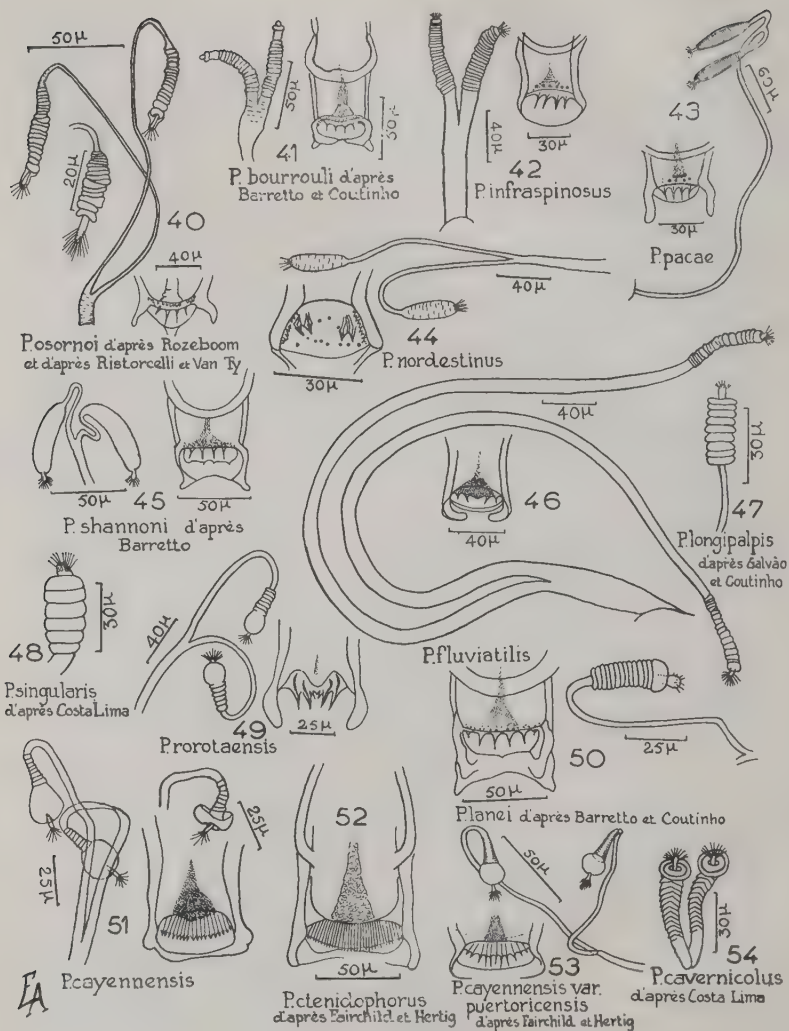 50 μ
20 μ
40
40 μ
P. osornoi d'après Rozeboom
et d'après Ristorcelli et Van Ty
50 μ
30 μ
41
P. bourrouli d'après
Barretto et Coutinho
40 μ
30 μ
42
P. infraspinosus
60 μ
43
30 μ
P. pacae
40 μ
44
30 μ
P. nordestinus
50 μ
45
50 μ
P. shannoni d'après
Barretto
40 μ
46
40 μ
P. fluviatilis
30 μ
47
P. longipalpis
d'après Galvào
et Coutinho
48
30 μ
P. singularis
d'après Costa Lima
40 μ
49
25 μ
P. rorotaensis
50
50 μ
25 μ
P. lanei d'après Barretto et Coutinho
25 μ
25 μ
51
P. cayennensis
52
50 μ
P. ctenidophorus
d'après Fairchild et Hertig
50 μ
53
P. cayennensis var.
puertoricensis
d'après Fairchild et Hertig
30 μ
54
P. cavernicolus
d'après Costa Lima
EA